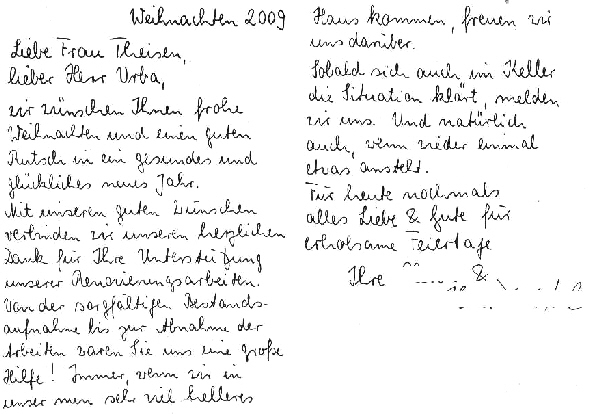 Weihnachten 2009
Liebe Frau Theisen,
lieber Herr Urba,
wir wünschen Ihnen frohe
Weihnachten und einen guten
Rutsch in ein gesundes und
glückliches neues Jahr.
Mit unseren guten Wünschen
verbinden wir unseren herzlichen
Dank für Ihre Unterstützung
unserer Renovierungsarbeiten.
Von der sorgfältigen Bestands-
aufnahme bis zur Abnahme der
Arbeiten waren Sie uns eine große
Hilfe! Immer, wenn wir in
unser nun sehr viel helleres
Haus kommen, freuen wir
uns darüber.
Sobald sich auch im Keller
die Situation klärt, melden
wir uns. Und natürlich
auch, wenn wieder einmal
etwas ansteht.
Für heute nochmals
alles Liebe & Gute für
erholsame Feiertage
Ihre &